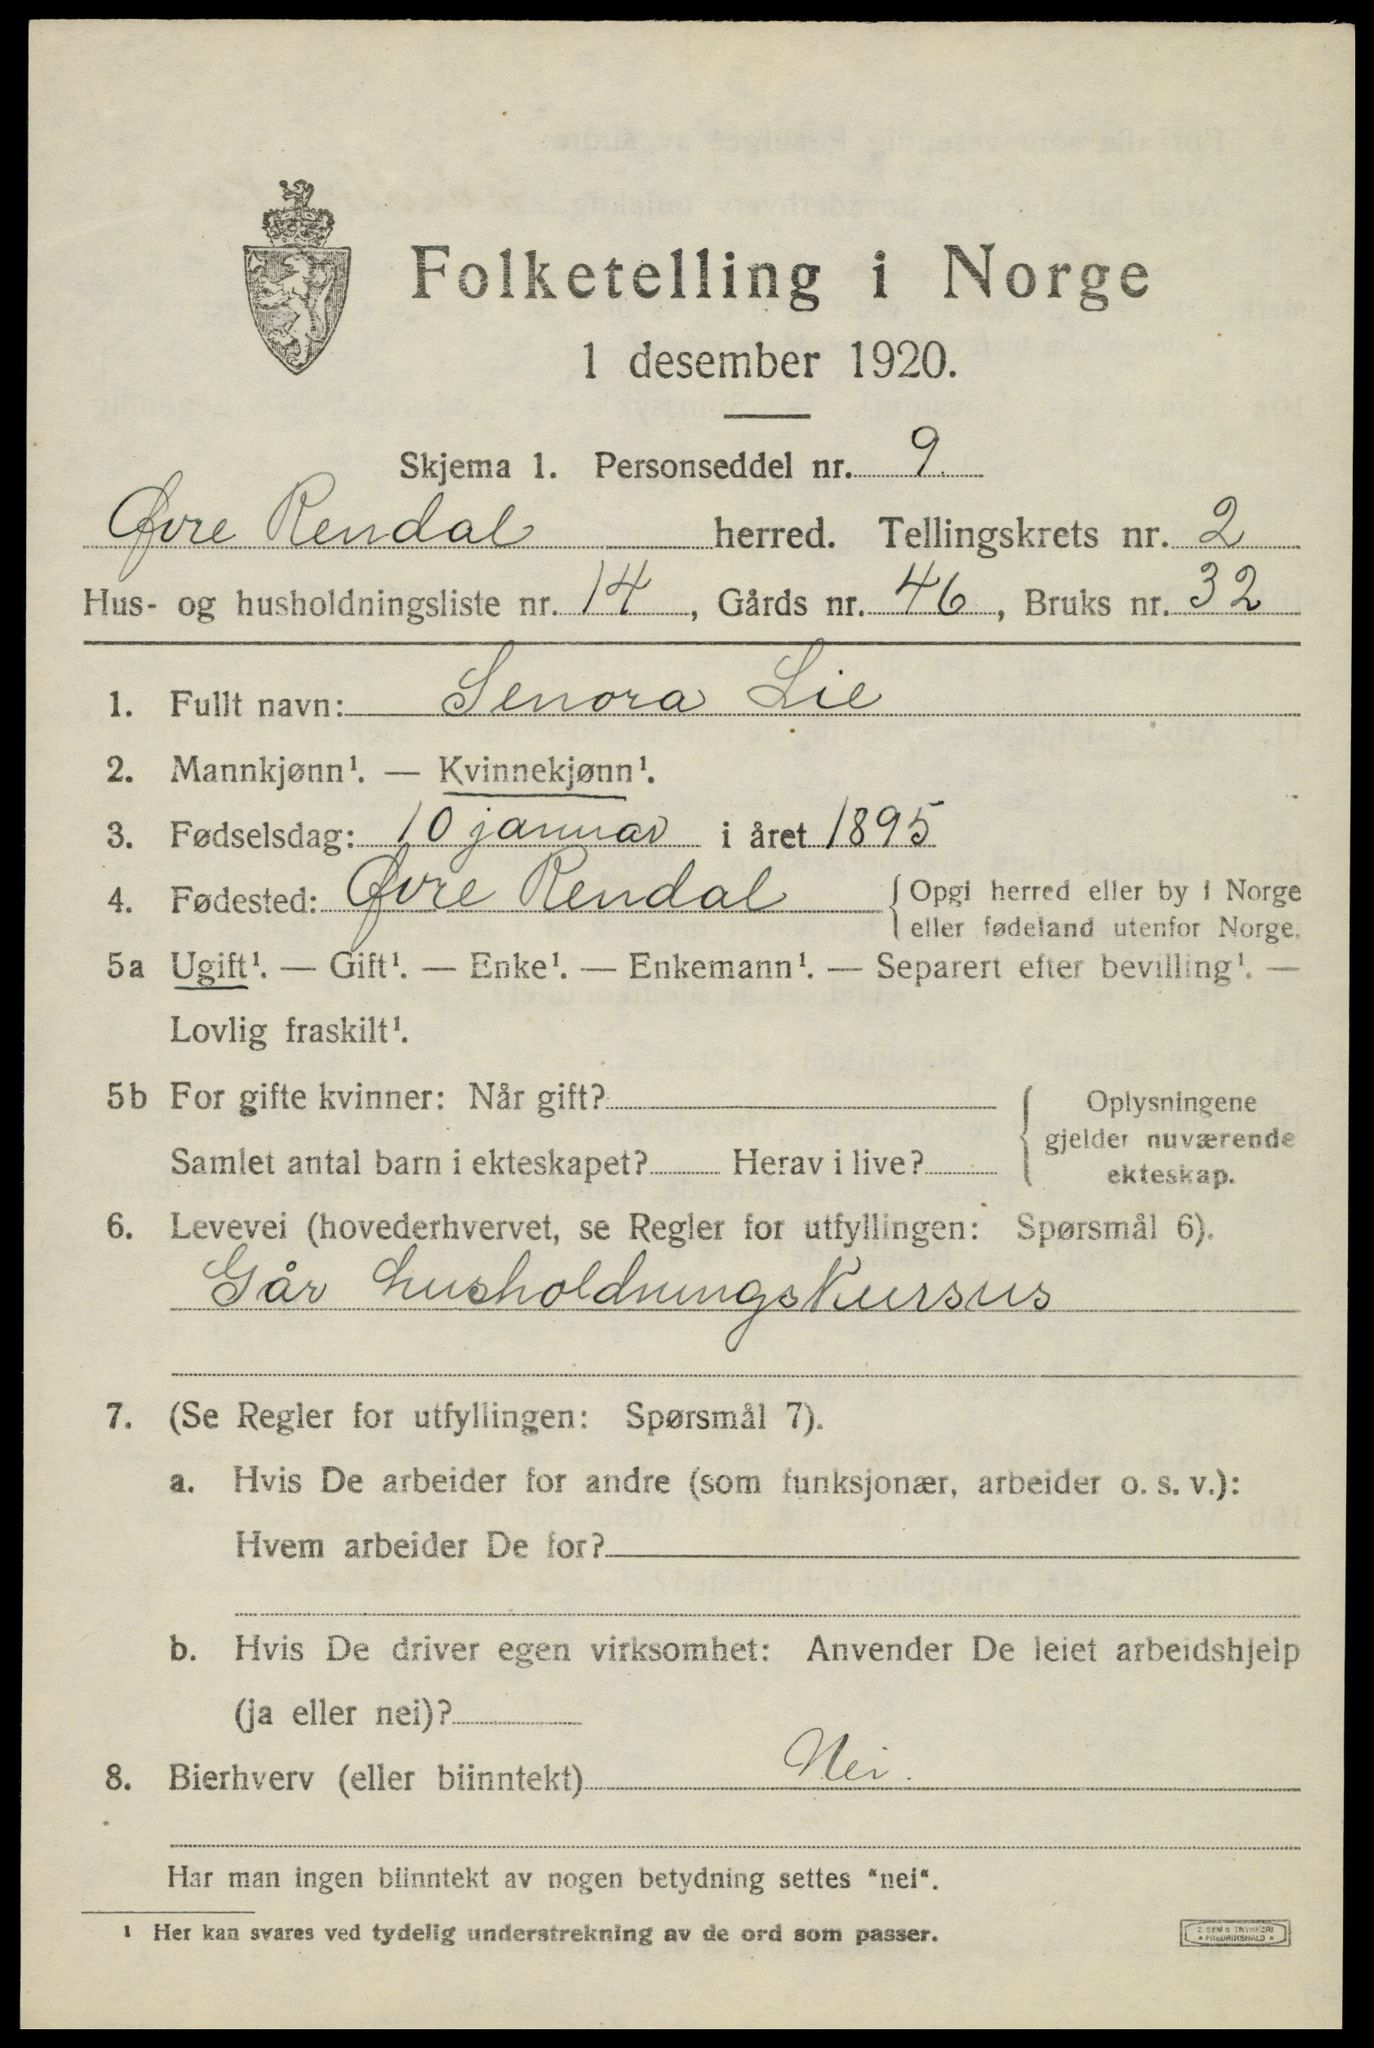 Folketelling i Norge
1 desember 1920.
Skjema 1. Personseddel nr. 9.
Øvre Rendal herred. Tellingskrets nr. 2
Hus- og husholdningsliste nr. 14, Gårds nr. 46, Bruks nr. 32
1. Fullt navn: Senora Lie
2. Mannkjønn¹. — Kvinnekjønn¹.
3. Fødselsdag: 10 januar i året 1895
4. Fødested: Øvre Rendal { Opgi herred eller by i Norge
eller fødeland utenfor Norge.
5a Ugift¹. — Gift¹. — Enke¹. — Enkemann¹. — Separert efter bevilling¹. —
Lovlig fraskilt¹.
5b For gifte kvinner: Når gift?
Samlet antal barn i ekteskapet? Herav i live?
{ Oplysningene
gjelder nuværende
ekteskap.
6. Levevei (hovederhvervet, se Regler for utfyllingen: Spørsmål 6).
Går husholdningskursus
7. (Se Regler for utfyllingen: Spørsmål 7).
a. Hvis De arbeider for andre (som funksjonær, arbeider o. s. v.):
Hvem arbeider De for?
b. Hvis De driver egen virksomhet: Anvender De leiet arbeidshjelp
(ja eller nei)?
8. Bierhverv (eller biinntekt) Nei.
Har man ingen biinntekt av nogen betydning settes "nei".
¹ Her kan svares ved tydelig understrekning av de ord som passer.